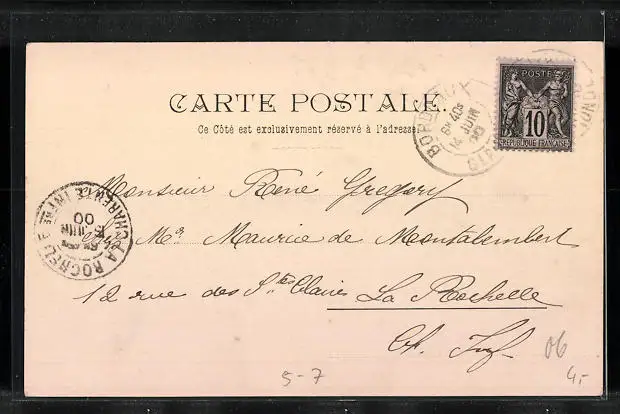 CARTE POSTALE.
Ce Côté est exclusivement réservé à l'adresse.
POSTE
10
RÉPUBLIQUE FRANÇAISE
BORDEAUX
6E 40S
14 JUIN
00
GIRONDE
LA ROCHELLE
CHARENTE INFRE
15
JUIN
00
Monsieur René Gregory
Mr Maurice de Montalembert
12 rue des Stes Claires La Rochelle
Ch. Inf.
06
5-7
4,-